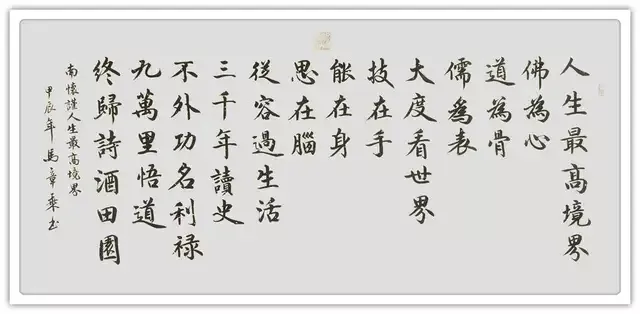 人生最高境界
佛為心
道為骨
儒為表
大度看世界
技在手
能在身
思在腦
從容過生活
三千年讀史
不外功名利祿
九萬里悟道
終歸詩酒田園
南懷謹人生最高境界
甲辰年馬章乘书